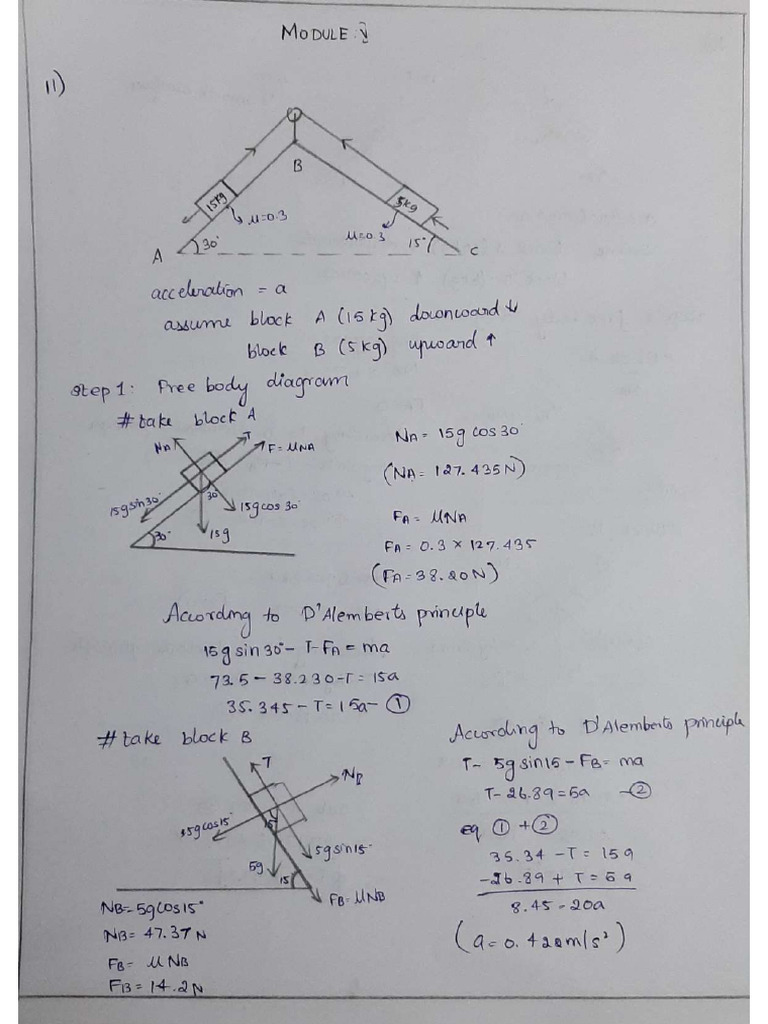 MODULE: V
11)
B
15kg
5kg
μ=0.3
μ=0.3
A
30°
15°
C
acceleration = a
assume block A (15kg) downward ↓
block B (5kg) upward ↑
Step 1: Free body diagram
# take block A
NA
T
F = μNA
15g sin 30°
30°
15g cos 30°
30°
15g
NA = 15g cos 30°
(NA = 127.435N)
FA = μNA
FA = 0.3 × 127.435
(FA = 38.20N)
According to D'Alemberts principle
15g sin 30° - T - FA = ma
73.5 - 38.230 - T = 15a
35.345 - T = 15a - ①
# take block B
T
NB
5g cos 15°
15
5g
5g sin 15°
15
FB = μNB
NB = 5g cos 15°
NB = 47.37 N
FB = μ NB
FB = 14.2 N
According to D'Alemberts principle
T - 5g sin 15 - FB = ma
T - 26.89 = 5a - ②
eq ① + ②
35.34 - T = 15a
-26.89 + T = 5a
8.45 - 20a
(a = 0.42 m/s²)